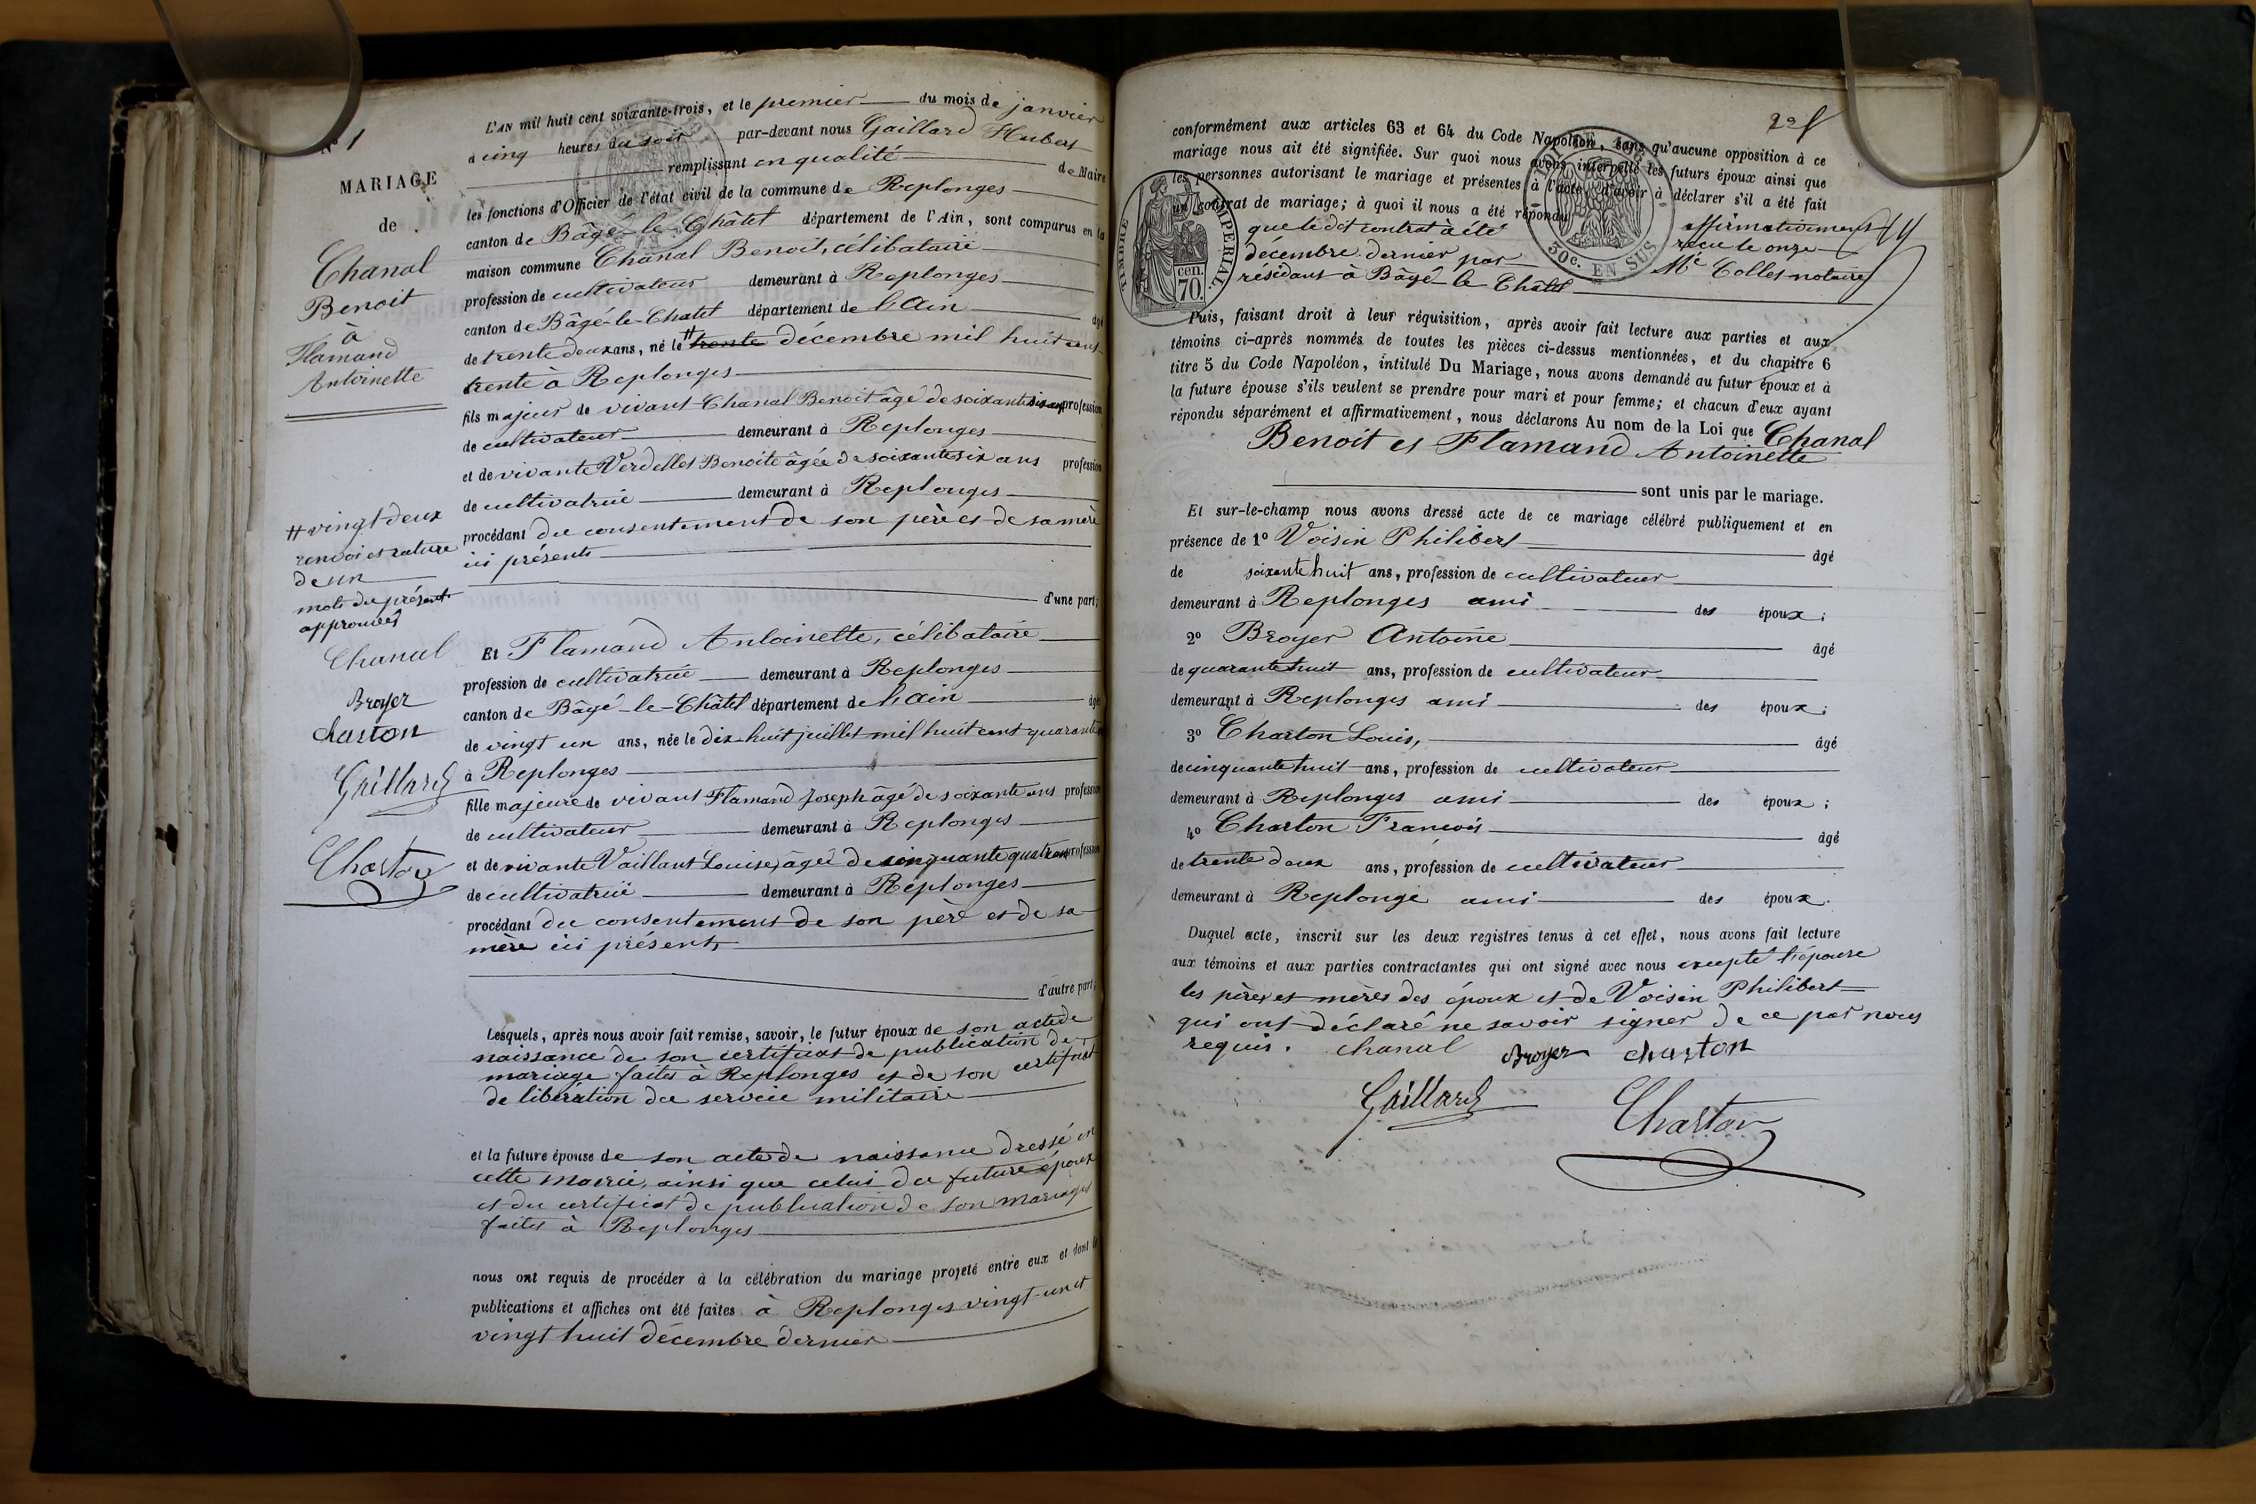 N° 1
MARIAGE
de
Chanal
Benoit
à
Flamand
Antoinette
# vingt deux
renvoi et rature
de un
mots du présent
approuvés
Chanal
Broyer
charton
Gaillard
Charton
L'AN mil huit cent soixante-trois, et le premier du mois de janvier
à cinq heures du soir par-devant nous Gaillard Hubert
remplissant en qualité de Maire
les fonctions d'Officier de l'état civil de la commune de Replonges
canton de Bâgé-le-Châtel département de l'Ain, sont comparus en la
maison commune Chanal Benoit, célibataire
profession de cultivateur demeurant à Replonges
canton de Bâgé-le-Chatel département de l'Ain âgé
de trente deux ans, né le # trente décembre mil huit cent
trente à Replonges
fils majeur de vivant Chanal Benoit âgé de soixante six ans profession
de cultivateur demeurant à Replonges
et de vivante Verdellet Benoite âgée de soixante six ans profession
de cultivatrice demeurant à Replonges
procédant du consentement de son père et de sa mère
ici présents
d'une part;
Et Flamand Antoinette, célibataire
profession de cultivatrice demeurant à Replonges
canton de Bâgé-le-Châtel département de l'Ain âgée
de vingt un ans, née le dix-huit juillet mil huit cent quarante
à Replonges
fille majeure de vivant Flamand Joseph âgé de soixante ans profession
de cultivateur demeurant à Replonges
et de vivante Vaillant Louise, âgée de cinquante quatre ans profession
de cultivatrice demeurant à Replonges
procédant du consentement de son père et de sa
mère ici présents
d'autre part;
Lesquels, après nous avoir fait remise, savoir, le futur époux de son acte de
naissance de son certificat de publication de
mariage faites à Replonges et de son certificat
de libération du service militaire
et la future épouse de son acte de naissance dressé en
cette mairie, ainsi que celui du future époux
et du certificat de publication de son mariage
faites à Replonges
nous ont requis de procéder à la célébration du mariage projeté entre eux et dont les
publications et affiches ont été faites à Replonges vingt-un et
vingt huit décembre dernier
conformément aux articles 63 et 64 du Code Napoléon, sans qu'aucune opposition à ce
mariage nous ait été signifiée. Sur quoi nous avons interpellé les futurs époux ainsi que
les personnes autorisant le mariage et présentes à l'acte d'avoir à déclarer s'il a été fait
un contrat de mariage; à quoi il nous a été répondu affirmativement
que le dit contrat à été recu le onze
décembre dernier par Me Collet notaire
résidant à Bâgé-le Châtel
TIMBRE IMPERIAL
70 cen.
50c. EN SUS
Puis, faisant droit à leur réquisition, après avoir fait lecture aux parties et aux
témoins ci-après nommés de toutes les pièces ci-dessus mentionnées, et du chapitre 6
titre 5 du Code Napoléon, intitulé Du Mariage, nous avons demandé au futur époux et à
la future épouse s'ils veulent se prendre pour mari et pour femme; et chacun d'eux ayant
répondu séparément et affirmativement, nous déclarons Au nom de la Loi que Chanal
Benoit et Flamand Antoinette
sont unis par le mariage.
Et sur-le-champ nous avons dressé acte de ce mariage célébré publiquement et en
présence de 1° Voisin Philibert âgé
de soixante huit ans, profession de cultivateur
demeurant à Replonges ami des époux;
2° Broyer Antoine âgé
de quarante huit ans, profession de cultivateur
demeurant à Replonges ami des époux;
3° Charton Louis, âgé
de cinquante huit ans, profession de cultivateur
demeurant à Replonges ami des époux;
4° Charton François âgé
de trente deux ans, profession de cultivateur
demeurant à Replonge ami des époux.
Duquel acte, inscrit sur les deux registres tenus à cet effet, nous avons fait lecture
aux témoins et aux parties contractantes qui ont signé avec nous excepté l'épouse
les pères et mères des époux et de Voisin Philibert
qui ont déclaré ne savoir signer de ce par nous
requis. chanal Broyer charton
Gaillard Charton